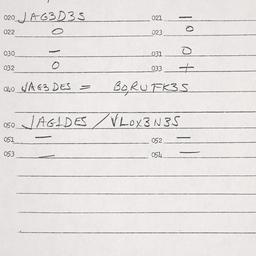 020 JAG3D3S 021 —
022 O 023 O
030 — 031 O
032 O 033 +
040 JAG3DES = BO,RUFK3S
050 JAG1DES / VLOX3N3S
051 — 052 —
053 — 054 —